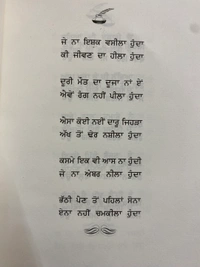 ਜੇ ਨਾ ਇਸ਼ਕ ਵਸੀਲਾ ਹੁੰਦਾ
ਕੀ ਜੀਵਣ ਦਾ ਹੀਲਾ ਹੁੰਦਾ
ਦੂਰੀ ਮੌਤ ਦਾ ਦੂਜਾ ਨਾਂ ਏਂ
ਐਵੇਂ ਰੰਗ ਨਹੀਂ ਪੀਲਾ ਹੁੰਦਾ
ਐਸਾ ਕੋਈ ਨਈਂ ਦਾਰੂ ਜਿਹੜਾ
ਅੱਖ ਤੋਂ ਵੱਧ ਨਸ਼ੀਲਾ ਹੁੰਦਾ
ਕਸਮੇ ਇਕ ਵੀ ਆਸ ਨਾ ਹੁੰਦੀ
ਜੇ ਨਾ ਅੰਬਰ ਨੀਲਾ ਹੁੰਦਾ
ਭੱਠੀ ਪੈਣ ਤੋਂ ਪਹਿਲਾਂ ਸੋਨਾ
ਏਨਾ ਨਹੀਂ ਚਮਕੀਲਾ ਹੁੰਦਾ